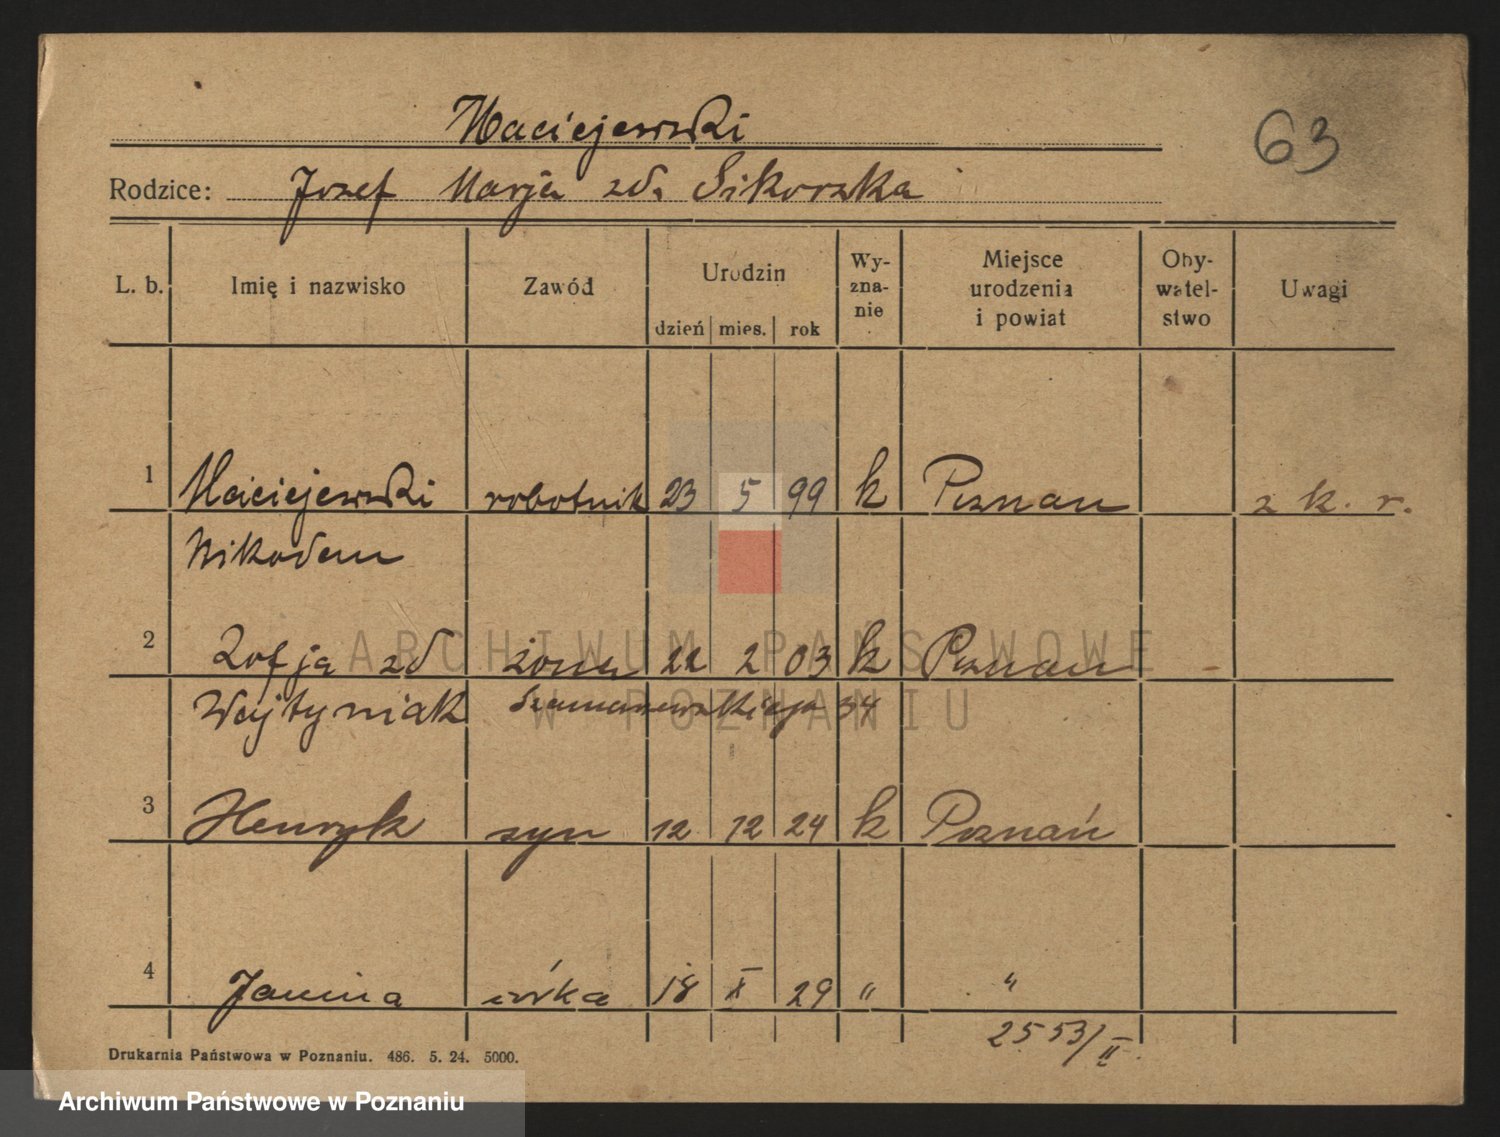 Maciejewski
63
Rodzice: Jozef Marja zd. Sikorska
L. b. Imię i nazwisko Zawód Urodzin dzień mies. rok Wy-zna-nie Miejsce urodzenia i powiat Oby-watel-stwo Uwagi
1 Maciejewski robotnik 23 5 99 k Poznan z k. r.
Nikodem
2 Zofja zd żona 22 2 03 k Poznan
Wojtyniak Szamarzewskiego 34
3 Henryk syn 12 12 24 k Poznań
4 Janina córka 18 X 29 " "
2553/II
Drukarnia Państwowa w Poznaniu. 486. 5. 24. 5000.
ARCHIWUM PAŃSTWOWE
W POZNANIU
Archiwum Państwowe w Poznaniu